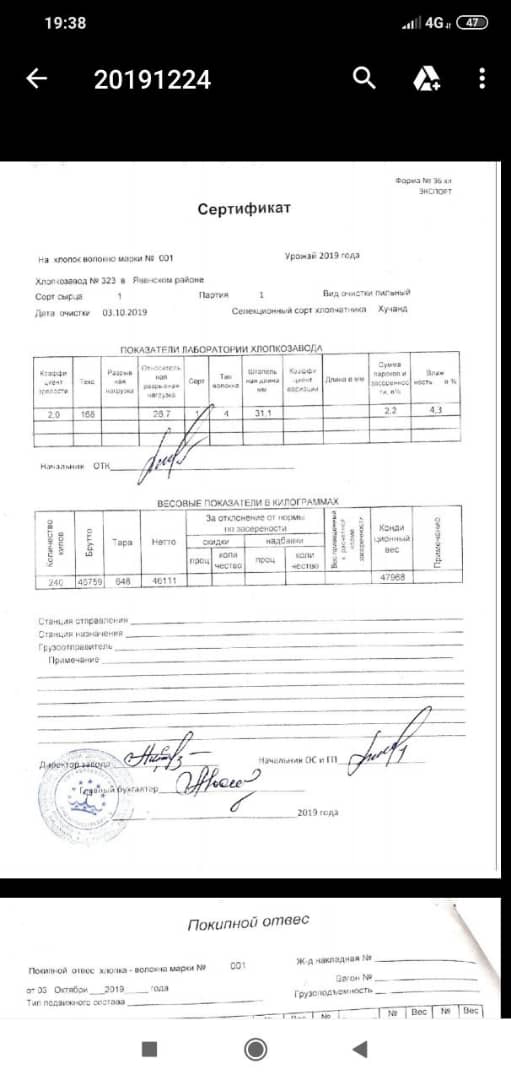 19:38
4G 47
20191224
Форма № 36 хл
ЭКСПОРТ
Сертификат
На хлопок волокно марки № 001
Урожай 2019 года
Хлопкозавод № 323 в Яванском районе
Сорт сырца 1 Партия 1 Вид очистки пильный
Дата очистки 03.10.2019 Селекционный сорт хлопчатника Хучанд
ПОКАЗАТЕЛИ ЛАБОРАТОРИИ ХЛОПКОЗАВОДА
Коэффи циент зрелости Текс Разрыв ная нагрузка Относитель ная разрывная нагрузка Сорт Тип волокна Штапель ная длина мм Коэффи циент вариации Длина в мм Сумма пароков и засореннос ти, в% Влаж ность в %
2,0 168 26.7 1 4 31.1 2,2 4,3
Начальник ОТК
ВЕСОВЫЕ ПОКАЗАТЕЛИ В КИЛОГРАММАХ
Количество кипов Брутто Тара Нетто За отклонение от нормы по засерености скидки надбавки проц коли чество проц коли чество Конди ционный вес Примечание
240 46759 648 46111 47988
Станция отправления
Станция назначения
Грузоотправитель
Примечание
Директор завода
Начальник ОС и ГП
Главный бухгалтер
2019 года
Покипной отвес
Покипной отвес хлопка - волокна марки № 001
Ж-д накладная №
от 03 Октябри 2019 года
Вагон №
Тип подвижного состава
Грузоподъемность
Вес № № Вес № Вес